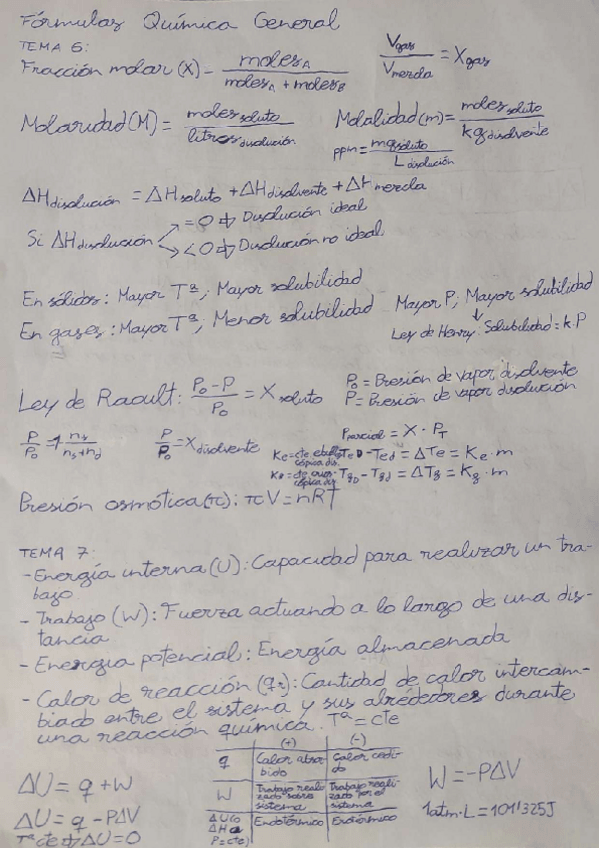 Fórmulas Química General
TEMA 6:
Fracción molar (X) = moles_A / (moles_A + moles_B)
V_gas / V_mezcla = X_gas
Molaridad (M) = moles_soluto / litros_disolución
Molalidad (m) = moles_soluto / kg disolvente
ppm = mg soluto / L disolución
ΔH disolución = ΔH soluto + ΔH disolvente + ΔH mezcla
Si ΔH disolución
= 0 ⇒ Disolución ideal
< 0 ⇒ Disolución no ideal
En sólidos: Mayor Tª; Mayor solubilidad
En gases: Mayor Tª; Menor solubilidad
Mayor P; Mayor solubilidad
↓
Ley de Henry: Solubilidad = k.P
Ley de Raoult: (P₀ - P) / P₀ = X soluto
P₀ = Presión de vapor disolvente
P = Presión de vapor disolución
P/P₀ = 1 - n_s / (n_s + n_d)
P/P₀ = X disolvente
P parcial = X · P_T
Ke = cte. ebulloscópica dis. TeD - Ted = ΔTe = Ke · m
TgD - Tgd = ΔTg = Kg · m
Presión osmótica (π): πV = nRT
TEMA 7:
- Energía interna (U): Capacidad para realizar un tra-
bajo
- Trabajo (W): Fuerza actuando a lo largo de una dis-
tancia
- Energía potencial: Energía almacenada
- Calor de reacción (qr): Cantidad de calor intercam-
biado entre el sistema y sus alrededores durante
una reacción química. Tª = cte
(+) (-)
q Calor absorbido Calor cedido
W Trabajo realizado sobre sistema Trabajo realizado por el sistema
ΔU (o ΔH a P = cte) Endotérmico Exotérmico
ΔU = q + W
ΔU = q - PΔV
Tª cte ⇒ ΔU = 0
W = -PΔV
1atm·L = 101'325J